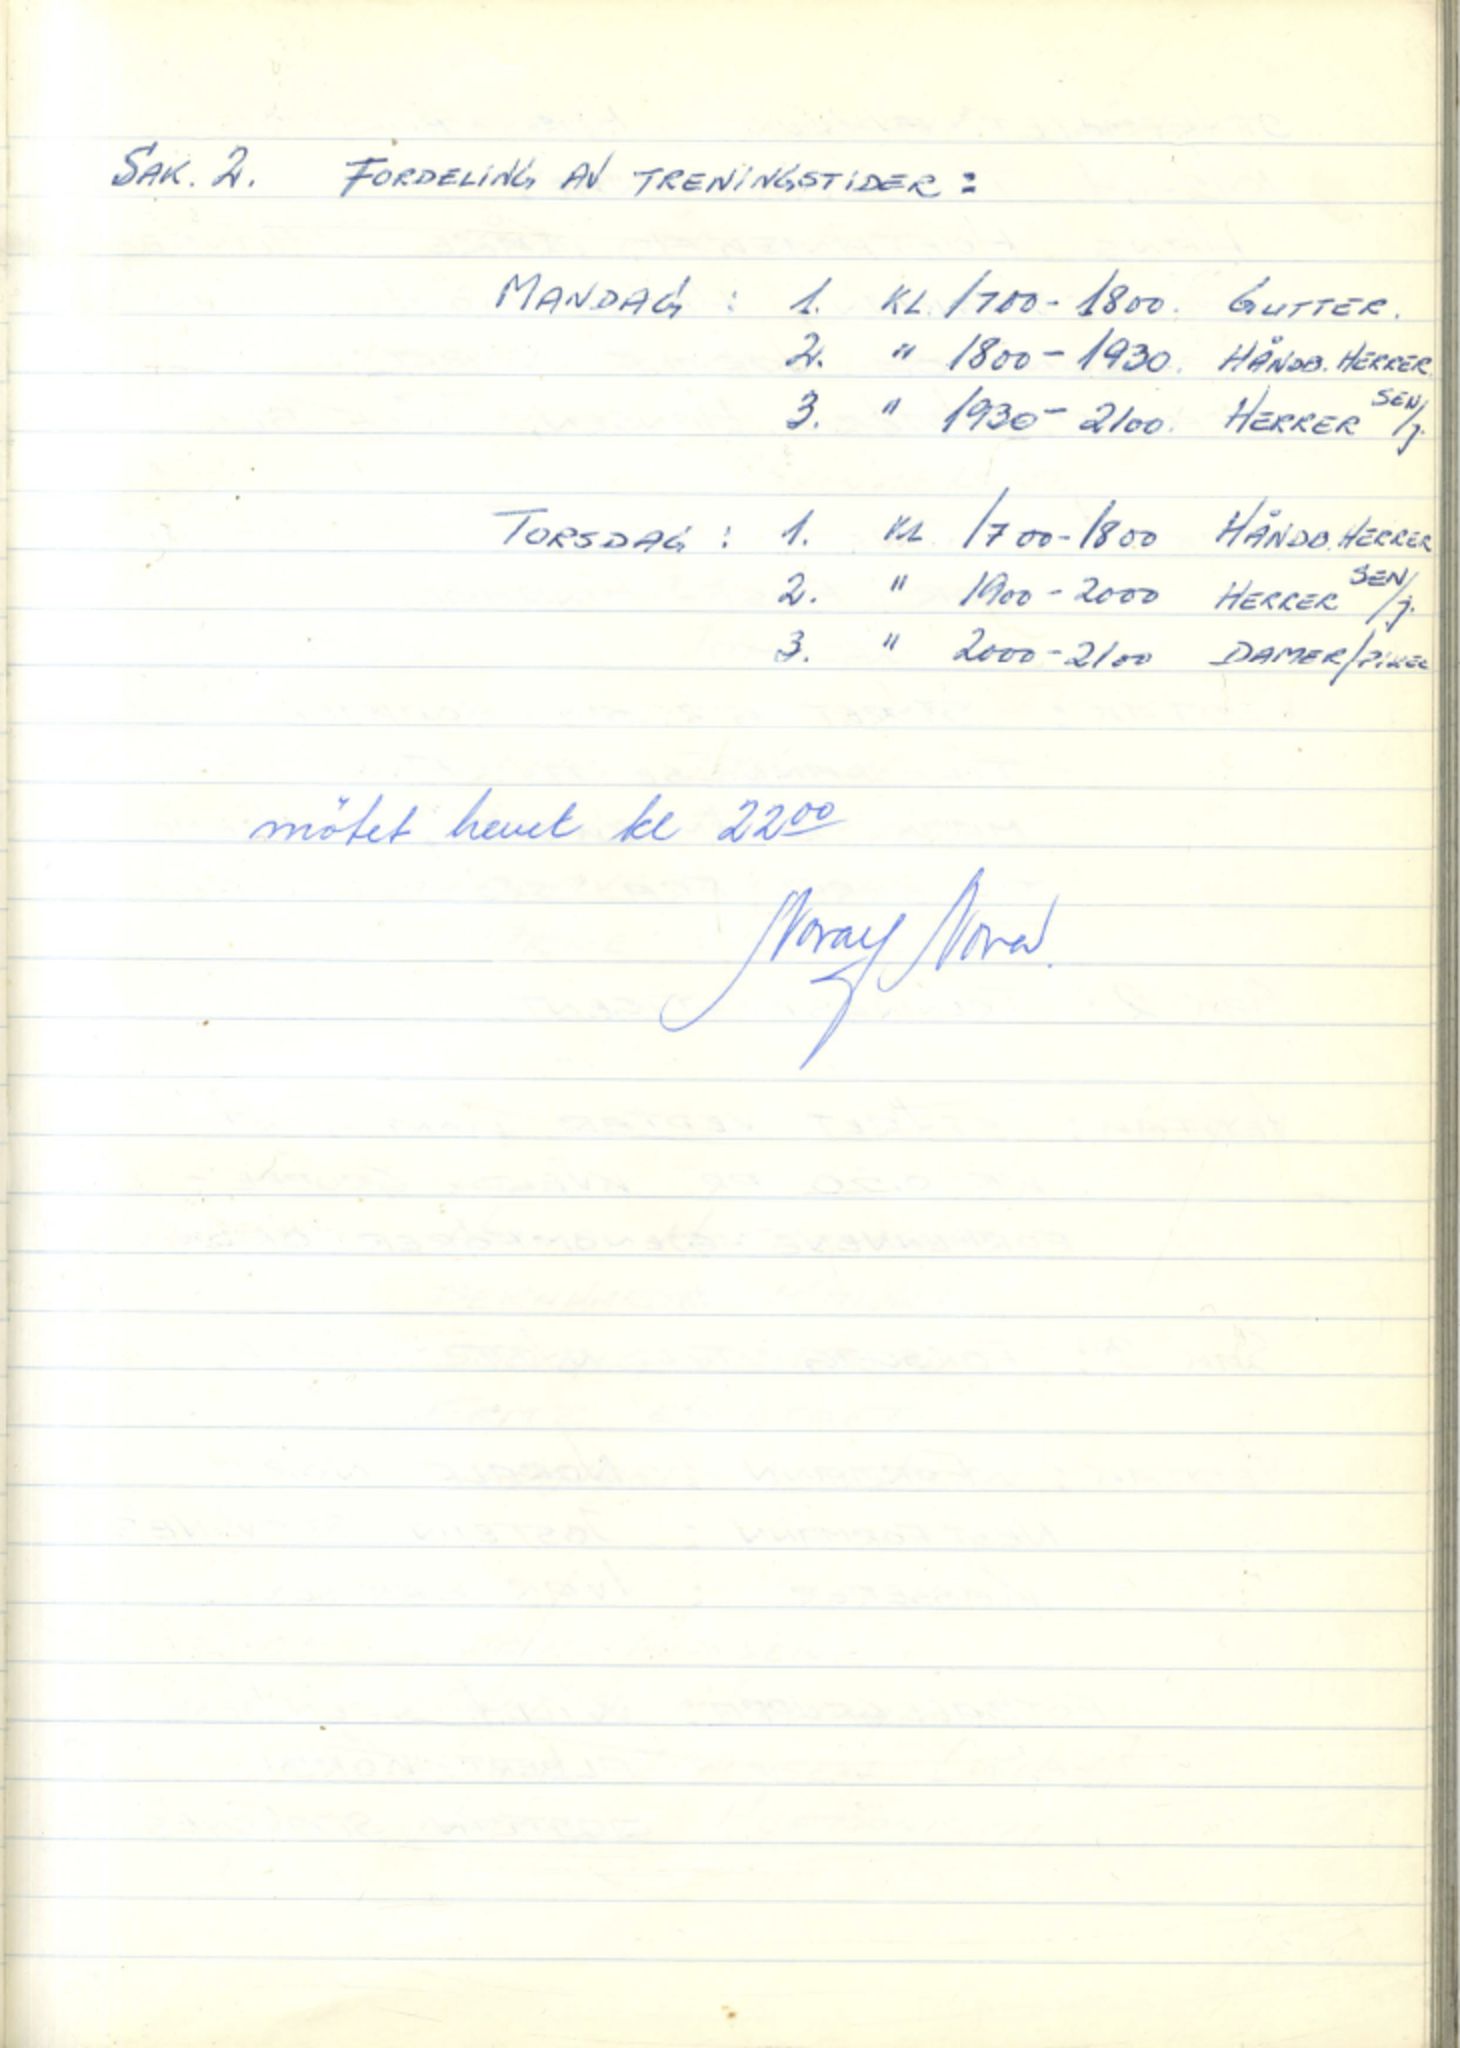 SAK. 2. FORDELING AV TRENINGSTIDER:
MANDAG : 1. KL. 1700 - 1800. GUTTER.
2. " 1800 - 1930. HÅNDB. HERRER.
3. " 1930 - 2100. HERRER SEN/J.
TORSDAG : 1. KL 1700 - 1800 HÅNDB. HERRER
2. " 1900 - 2000 HERRER SEN/J.
3. " 2000 - 2100 DAMER/PIKER
mötet hevet kl 2200